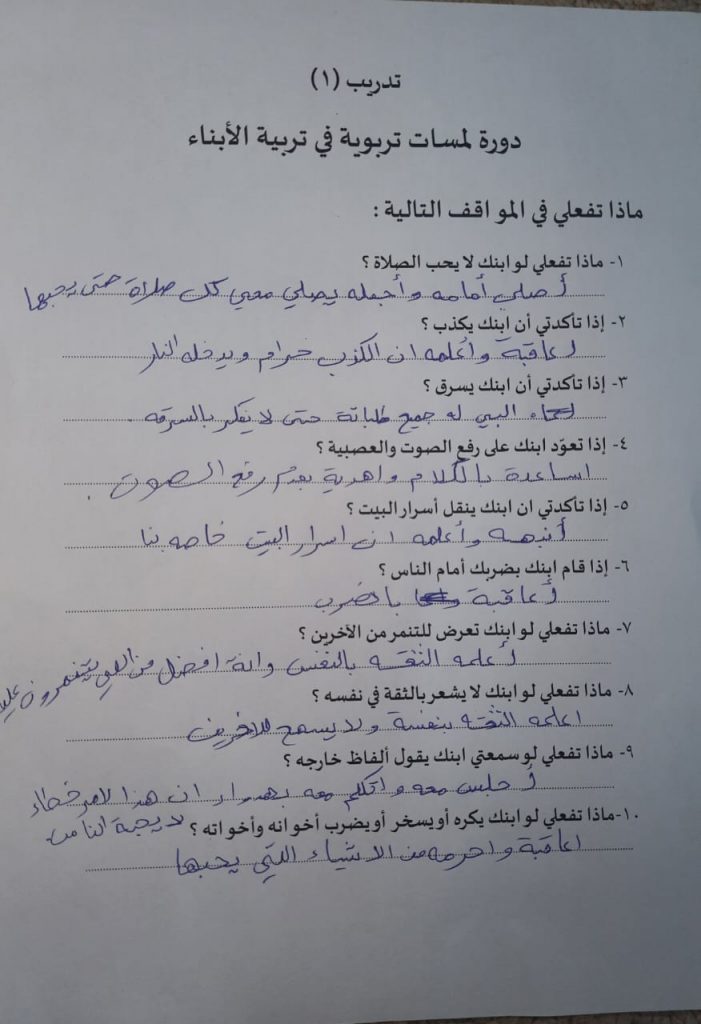 تدريب (١)
دورة لمسات تربوية في تربية الأبناء
ماذا تفعلي في المواقف التالية :
١- ماذا تفعلي لو ابنك لا يحب الصلاة ؟
أصلي أمامه وأجعله يصلي معي كل صلاة حتى يحبها
٢- إذا تأكدتي أن ابنك يكذب ؟
أعاقبة وأعلمه ان الكذب حرام ويدخله النار
٣- إذا تأكدتي أن ابنك يسرق ؟
البي له جميع طلباتة حتى لا يفكر بالسرقه
٤- إذا تعوّد ابنك على رفع الصوت والعصبية ؟
اساعدة بالكلام واهدية بعدم رفع الصوت .
٥- إذا تأكدتي ان ابنك ينقل أسرار البيت ؟
أنبهه وأعلمه ان اسرار البيت خاصه بنا
٦- إذا قام ابنك بضربك أمام الناس ؟
أعاقبة بالضرب
٧- ماذا تفعلي لو ابنك تعرض للتنمر من الآخرين ؟
أعلمه الثقه بالنفس وانة افضل من الي يتنمرون عليه
٨- ماذا تفعلي لو ابنك لا يشعر بالثقة في نفسه ؟
اعلمه الثقه بنفسة ولا يسمح للاخرين
٩- ماذا تفعلي لو سمعتي ابنك يقول ألفاظ خارجه ؟
أجلس معه واتكلم معه بهدوء ان هذا الامر خطاء
لا يحبة الناس
١٠- ماذا تفعلي لو ابنك يكره أو يسخر أو يضرب أخوانه وأخواته ؟
اعاقبة واحرمه من الاشياء اللتي يحبها